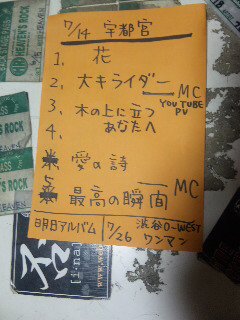 7/14 宇都宮
1. 花
2. 大キライダー
MC
3. 木の上に立つ
YOUTUBE
PV
4. あなたへ
愛の詩
MC
5 最高の瞬間
明日アルバム
7/26
渋谷O-WEST
ワンマン
HEAVEN'S ROCK
[i-na]